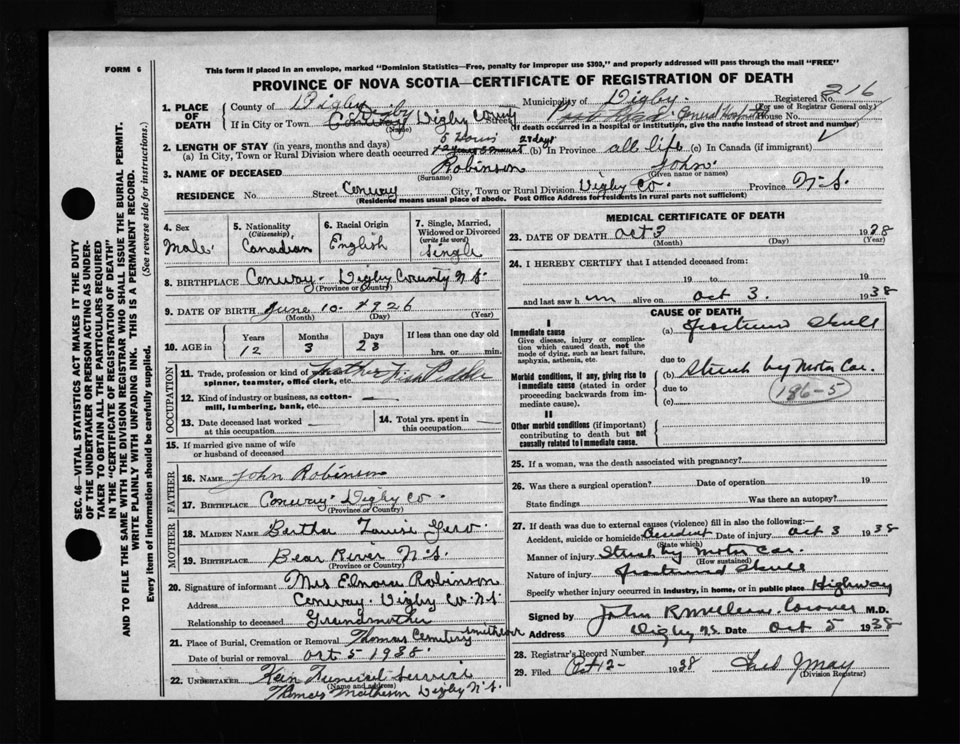 FORM 6
This form if placed in an envelope, marked "Dominion Statistics—Free, penalty for improper use $300," and properly addressed will pass through the mail "FREE"
PROVINCE OF NOVA SCOTIA—CERTIFICATE OF REGISTRATION OF DEATH
SEC. 46—VITAL STATISTICS ACT MAKES IT THE DUTY
OF THE UNDERTAKER OR PERSON ACTING AS UNDER-
TAKER TO OBTAIN ALL THE PARTICULARS REQUIRED
IN THE "CERTIFICATE OF REGISTRATION OF DEATH"
AND TO FILE THE SAME WITH THE DIVISION REGISTRAR WHO SHALL ISSUE THE BURIAL PERMIT.
WRITE PLAINLY WITH UNFADING INK. THIS IS A PERMANENT RECORD.
Every item of information should be carefully supplied. (See reverse side for instructions.)
1. PLACE OF DEATH County of Digby Municipality of Digby Registered No. 216
(For use of Registrar General only)
If in City or Town Digby County Street General Hospital House No.
(Name) (If death occurred in a hospital or institution, give the name instead of street and number)
2. LENGTH OF STAY (in years, months and days)
(a) In City, Town or Rural Division where death occurred 5 Hours (b) In Province all life (c) In Canada (if immigrant)
3. NAME OF DECEASED Robinson John
(Surname) (Given name or names)
RESIDENCE No. Street Conway City, Town or Rural Division Digby Co. Province N.S.
(Residence means usual place of abode. Post Office Address for residents in rural parts not sufficient)
4. Sex Male
5. Nationality (Citizenship) Canadian
6. Racial Origin English
7. Single, Married, Widowed or Divorced (write the word) Single
8. BIRTHPLACE Conway. Digby County N.S.
(Province or Country)
9. DATE OF BIRTH June 10. 1926
(Month) (Day) (Year)
10. AGE in Years 12 Months 3 Days 23 If less than one day old hrs. or min.
OCCUPATION
11. Trade, profession or kind of
spinner, teamster, office clerk, etc. Fish Peddler
12. Kind of industry or business, as cotton-
mill, lumbering, bank, etc. —
13. Date deceased last worked at this occupation
14. Total yrs. spent in this occupation
15. If married give name of wife or husband of deceased
FATHER
16. NAME John Robinson
17. BIRTHPLACE Conway Digby Co.
(Province or Country)
MOTHER
18. MAIDEN NAME Bertha Louise
19. BIRTHPLACE Bear River N.S.
(Province or Country)
20. Signature of informant Mrs Elnora Robinson
Address Conway. Digby Co. N.S.
Relationship to deceased Grandmother
21. Place of Burial, Cremation or Removal Thomas Cemetery
Date of burial or removal Oct 5 1938.
22. UNDERTAKER Funeral Service
(Name and address)
Digby N.S.
MEDICAL CERTIFICATE OF DEATH
23. DATE OF DEATH Oct 3 1938
(Month) (Day) (Year)
24. I HEREBY CERTIFY that I attended deceased from:
19 to 19
and last saw h im alive on Oct 3. 1938
CAUSE OF DEATH
I
Immediate cause
Give disease, injury or complica-
tion which caused death, not the
mode of dying, such as heart failure,
asphyxia, asthenia, etc.
(a) Fractured Skull
due to
Morbid conditions, if any, giving rise to
immediate cause (stated in order
proceeding backwards from im-
mediate cause).
(b) Struck by Motor Car.
due to 186-5
(c)
II
Other morbid conditions (if important)
contributing to death but not
causally related to immediate cause.
25. If a woman, was the death associated with pregnancy?
26. Was there a surgical operation? Date of operation 19
State findings Was there an autopsy?
27. If death was due to external causes (violence) fill in also the following:—
Accident, suicide or homicide? Accident Date of injury Oct 3 1938
(State which)
Manner of injury Struck by Motor Car.
(How sustained)
Nature of injury Fractured Skull
Specify whether injury occurred in industry, in home, or in public place Highway
Signed by John R. Coroner M.D.
Address Digby N.S. Date Oct 5 1938
28. Registrar's Record Number
29. Filed Oct 12 - 1938 May
(Division Registrar)